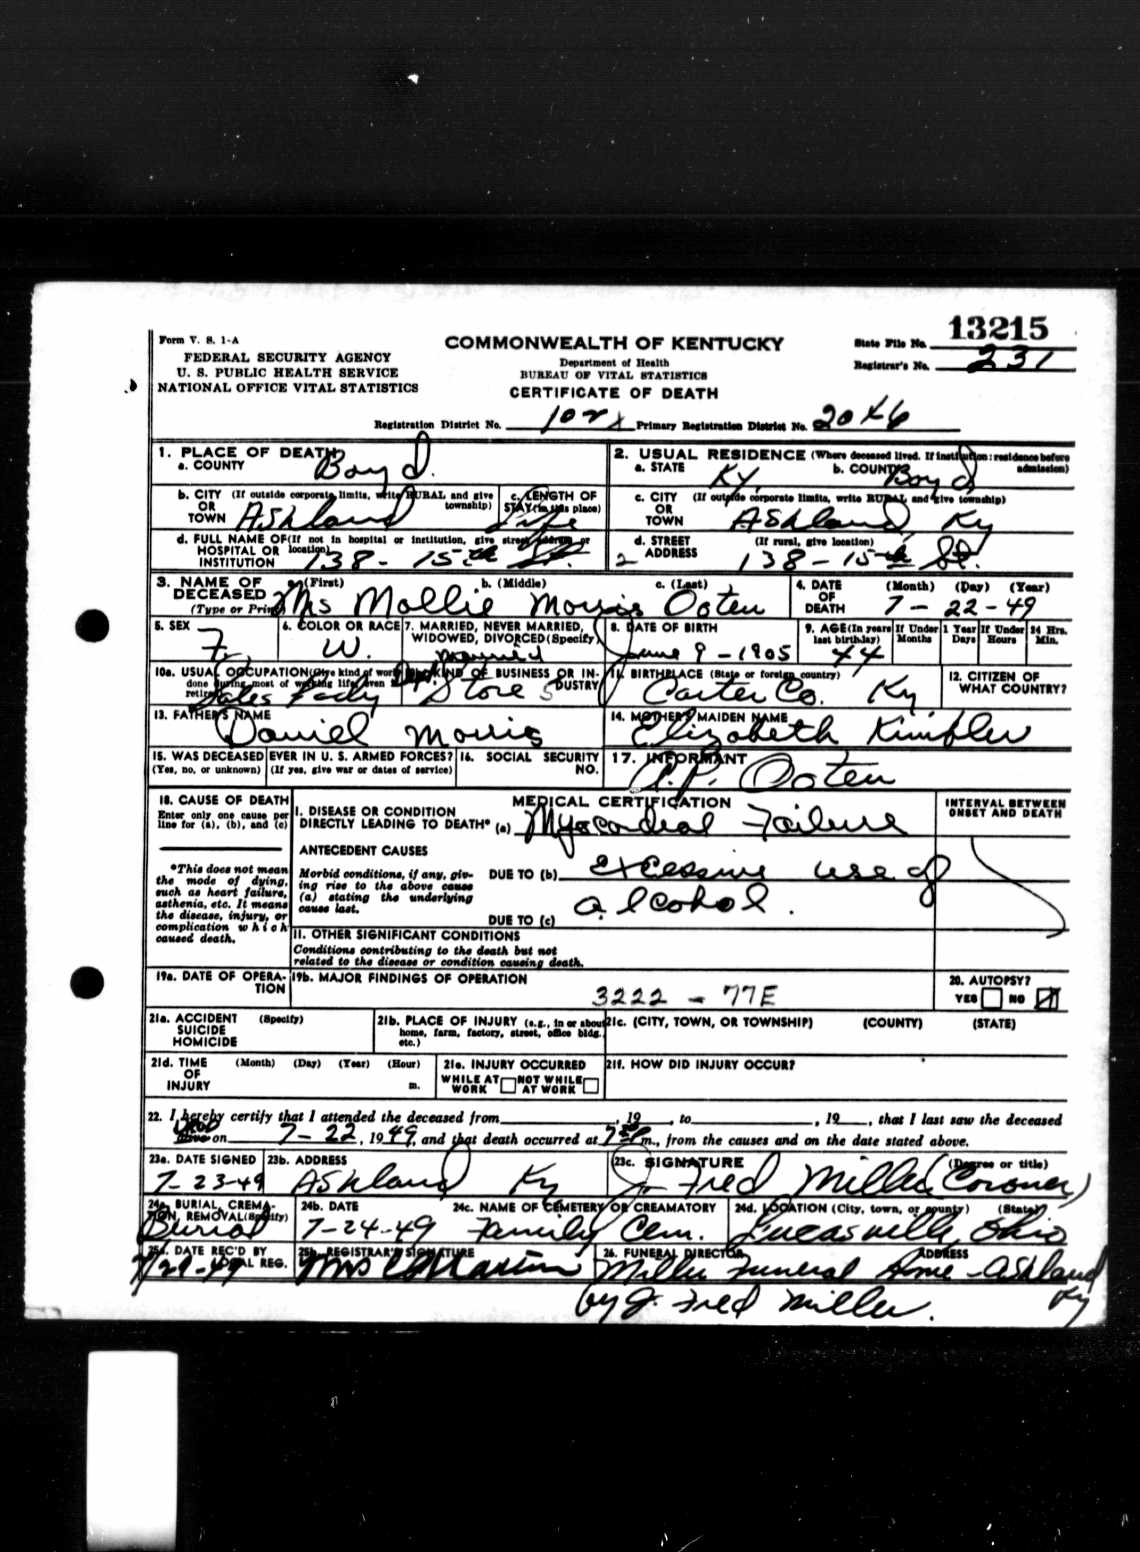 13215
Form V. S. 1-A
COMMONWEALTH OF KENTUCKY
State File No.
FEDERAL SECURITY AGENCY
Department of Health
Registrar's No. 231
U. S. PUBLIC HEALTH SERVICE
BUREAU OF VITAL STATISTICS
NATIONAL OFFICE VITAL STATISTICS
CERTIFICATE OF DEATH
Registration District No. Primary Registration District No.
1. PLACE OF DEATH
a. COUNTY Boyd.
2. USUAL RESIDENCE (Where deceased lived. If institution: residence before admission)
a. STATE Ky. b. COUNTY Boyd
b. CITY (If outside corporate limits, write RURAL and give township)
OR
TOWN Ashland
c. LENGTH OF
STAY (in this place) Life
c. CITY (If outside corporate limits, write RURAL and give township)
OR
TOWN Ashland, Ky
d. FULL NAME OF (If not in hospital or institution, give street address or location)
HOSPITAL OR
INSTITUTION 138 - 15th St.
d. STREET (If rural, give location)
ADDRESS 138 - 15th St.
3. NAME OF DECEASED (Type or Print)
a. (First) b. (Middle) c. (Last)
Mrs Mollie Morris Ooten
4. DATE OF DEATH (Month) (Day) (Year)
7 - 22 - 49
5. SEX F.
6. COLOR OR RACE W.
7. MARRIED, NEVER MARRIED, WIDOWED, DIVORCED (Specify) Married
8. DATE OF BIRTH June 9 - 1905
9. AGE (In years last birthday) 44
If Under 1 Year Months Days
If Under 24 Hrs. Hours Min.
10a. USUAL OCCUPATION (Give kind of work done during most of working life, even if retired) Sales Lady
10b. KIND OF BUSINESS OR INDUSTRY Store
11. BIRTHPLACE (State or foreign country) Carter Co. Ky.
12. CITIZEN OF WHAT COUNTRY?
13. FATHER'S NAME Daniel Morris
14. MOTHER'S MAIDEN NAME Elizabeth Kimbler
15. WAS DECEASED EVER IN U. S. ARMED FORCES? (Yes, no, or unknown) (If yes, give war or dates of service)
16. SOCIAL SECURITY NO.
17. INFORMANT Ooten
18. CAUSE OF DEATH
Enter only one cause per line for (a), (b), and (c)
*This does not mean the mode of dying, such as heart failure, asthenia, etc. It means the disease, injury, or complication which caused death.
MEDICAL CERTIFICATION
INTERVAL BETWEEN ONSET AND DEATH
I. DISEASE OR CONDITION DIRECTLY LEADING TO DEATH* (a) Myocardial Failure
ANTECEDENT CAUSES
Morbid conditions, if any, giving rise to the above cause (a) stating the underlying cause last.
DUE TO (b) excessive use of
alcohol.
DUE TO (c)
II. OTHER SIGNIFICANT CONDITIONS
Conditions contributing to the death but not related to the disease or condition causing death.
19a. DATE OF OPERATION
19b. MAJOR FINDINGS OF OPERATION
3222 - 77E
20. AUTOPSY?
YES NO
21a. ACCIDENT (Specify)
SUICIDE
HOMICIDE
21b. PLACE OF INJURY (e.g., in or about home, farm, factory, street, office bldg., etc.)
21c. (CITY, TOWN, OR TOWNSHIP) (COUNTY) (STATE)
21d. TIME OF INJURY (Month) (Day) (Year) (Hour) m.
21e. INJURY OCCURRED
WHILE AT WORK NOT WHILE AT WORK
21f. HOW DID INJURY OCCUR?
22. I hereby certify that I attended the deceased from , 19 , to , 19 , that I last saw the deceased
alive on 7-22, 1949, and that death occurred at m., from the causes and on the date stated above.
23a. DATE SIGNED 7-23-49
23b. ADDRESS Ashland Ky
23c. SIGNATURE (Degree or title)
J. Fred Miller (Coroner)
24a. BURIAL, CREMATION, REMOVAL (Specify) Burial
24b. DATE 7-24-49
24c. NAME OF CEMETERY OR CREAMATORY Family Cem.
24d. LOCATION (City, town, or county) (State) Lucasville, Ohio
25a. DATE REC'D BY LOCAL REG. 7/29-49
25b. REGISTRAR'S SIGNATURE Mrs
26. FUNERAL DIRECTOR ADDRESS
Miller Funeral Home - Ashland Ky
by J. Fred Miller.